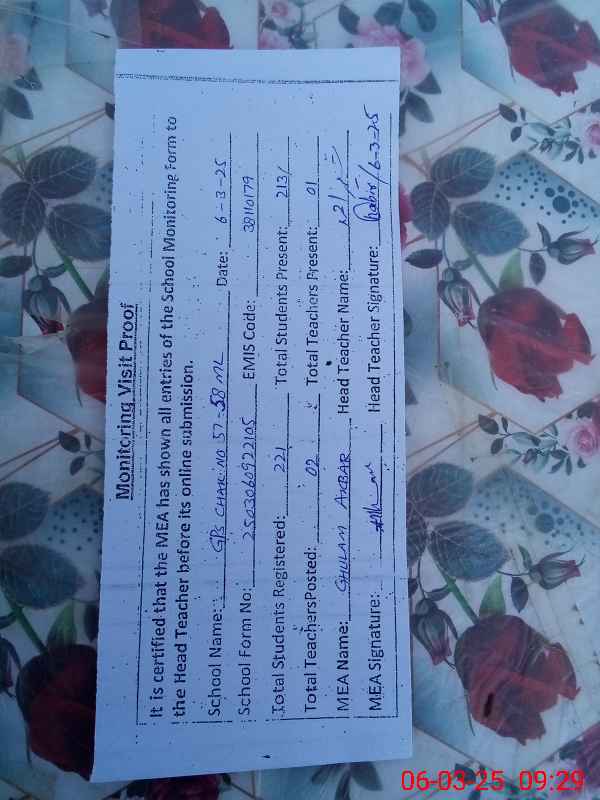 Monitoring Visit Proof
It is certified that the MEA has shown all entries of the School Monitoring Form to
the Head Teacher before its online submission.
School Name: GPS CHAK NO 57-58 ML Date: 6-3-25
School Form No: 2503060922105 EMIS Code: 38110179
Total Students Registered: 221 Total Students Present: 213/
Total TeachersPosted: 02 Total Teachers Present: 01
MEA Name: GHULAM AKBAR Head Teacher Name:
MEA Signature: Head Teacher Signature: 6-3-25
06-03-25 09:29